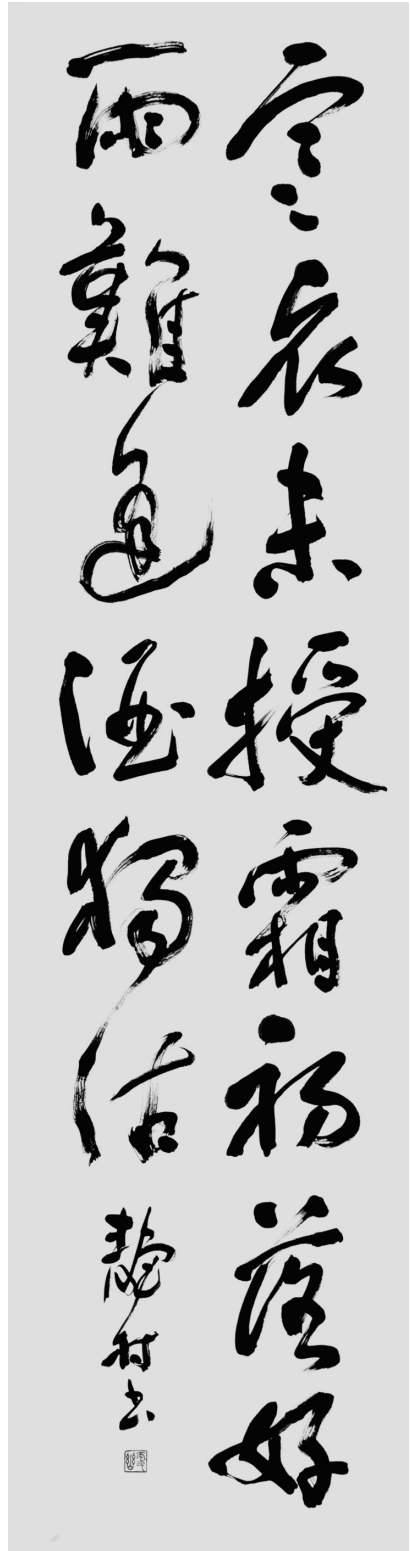 寒衣未授霜初落好
雨難逢酒獨沽
静村書